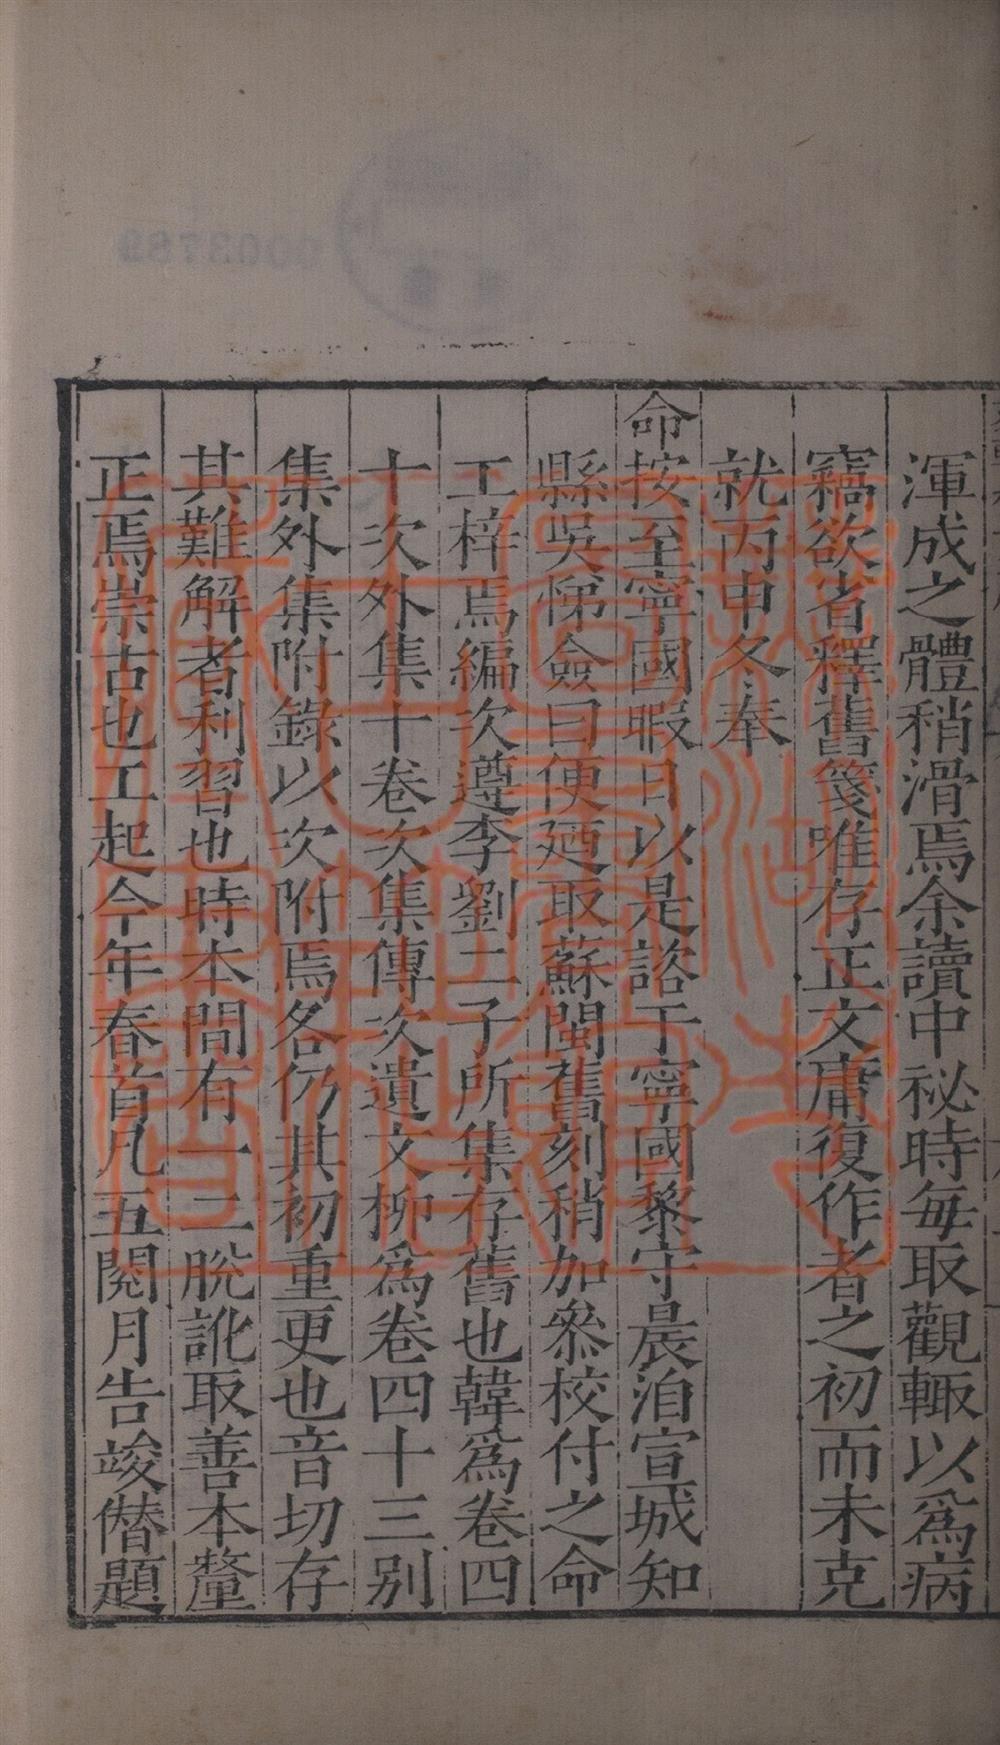 渾成之體稍滑焉余讀中祕時每取觀輙以爲病
竊欲省釋舊箋唯存正文庸復作者之初而未克
就丙申冬奉
命按至寧國暇日以是諮于寧國黎守晨洎宣城知
縣吳悌僉曰便廼取蘇閩舊刻稍加叅校付之命
工梓焉編次遵李劉二子所集存舊也韓爲卷四
十次外集十卷次集傳次遺文柳爲卷四十三别
集外集附錄以次附焉各仍其初重更也音切存
其難解者利習也時本間有一二脫訛取善本釐
正焉崇古也工起今年春首凡五閱月告竣僣題